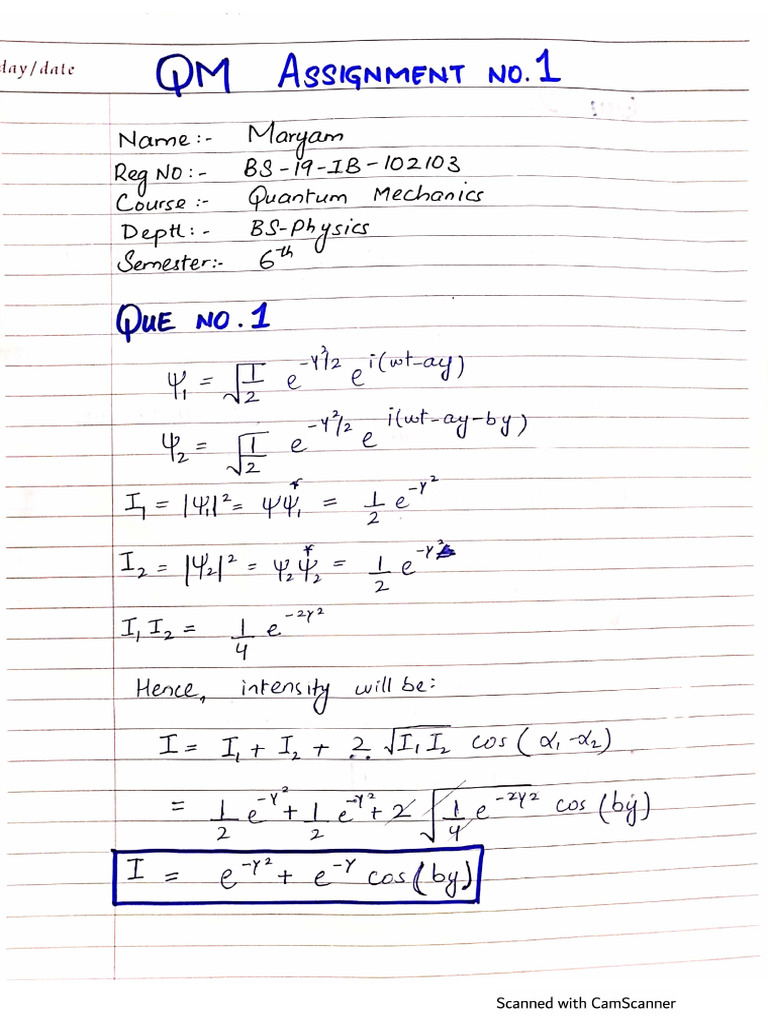 day/date
QM ASSIGNMENT NO.1
Name:- Maryam
Reg No:- BS-19-IB-102103
Course:- Quantum Mechanics
Deptt:- BS-Physics
Semester:- 6th
QUE NO.1
Ψ₁ = √(1/2) e^(-y²/2) e^(i(wt-ay))
Ψ₂ = √(1/2) e^(-y²/2) e^(i(wt-ay-by))
I₁ = |Ψ₁|² = ΨΨ₁* = 1/2 e^(-y²)
I₂ = |Ψ₂|² = Ψ₂Ψ₂* = 1/2 e^(-y²)
I₁ I₂ = 1/4 e^(-2y²)
Hence, intensity will be:
I = I₁ + I₂ + 2 √(I₁ I₂) cos(α₁-α₂)
= 1/2 e^(-y²) + 1/2 e^(-y²) + 2 √(1/4 e^(-2y²)) cos(by)
I = e^(-y²) + e^(-y) cos(by)
Scanned with CamScanner